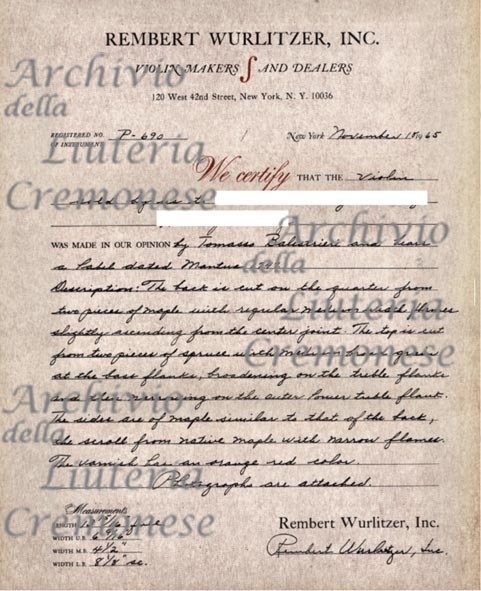 REMBERT WURLITZER, INC.
VIOLIN MAKERS AND DEALERS
120 West 42nd Street, New York, N. Y. 10036
REGISTERED NO. P-690
OF INSTRUMENT
New York November 18 1965
We certify THAT THE Violin
sold by us to
WAS MADE IN OUR OPINION by Tomasso Balestrieri and bears
a label dated Mantua
Description: The back is cut on the quarter from
two pieces of maple with regular medium width flames
slightly ascending from the center joint. The top is cut
from two pieces of spruce with medium grain
at the bass flanks, broadening on the treble flanks
and then narrowing on the outer lower treble flank.
The sides are of maple similar to that of the back,
the scroll from native maple with narrow flames.
The varnish has an orange red color.
Photographs are attached.
Measurements
LENGTH
WIDTH U.B.
WIDTH M.B. 4 1/2"
WIDTH L.B.
Rembert Wurlitzer, Inc.
Rembert Wurlitzer, Inc.
Archivio
della
Liuteria
Cremonese
Archivio
della
Liuteria
Cremonese
Archivio
della
Liuteria
Cremonese